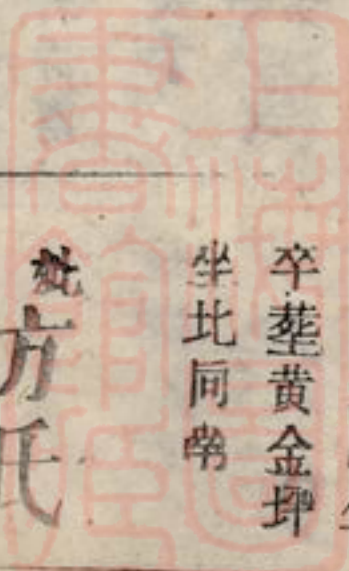 卒塟黄金坪
坐北向南
妣方氏